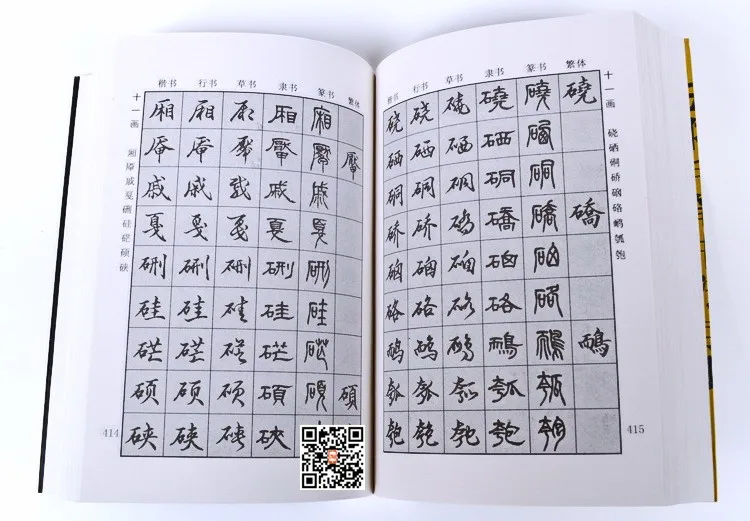 楷书 行书 草书 隶书 篆书 繁体
十一画 厢厣戚戛硎硅硭硕硖
厢 厢 厢 厢 厢
厣 厣 厣 厴 厴 厴
戚 戚 戚 戚 戚
戛 戛 戛 戛 戛
硎 硎 硎 硎 硎
硅 硅 硅 硅 硅
硭 硭 硭 硭 硭
硕 硕 硕 碩 碩 碩
硖 硖 硖 硖
414
楷书 行书 草书 隶书 篆书 繁体
十一画 硗硒硐硚硇硌鸸瓠匏
硗 硗 硗 磽 磽 磽
硒 硒 硒 硒 硒
硐 硐 硐 硐 硐
硚 硚 硚 礄 礄 礄
硇 硇 硇 硇 硇
硌 硌 硌 硌 硌
鸸 鸸 鸸 鴯 鴯 鴯
瓠 瓠 瓠 瓠 瓠
匏 匏 匏 匏 匏
415